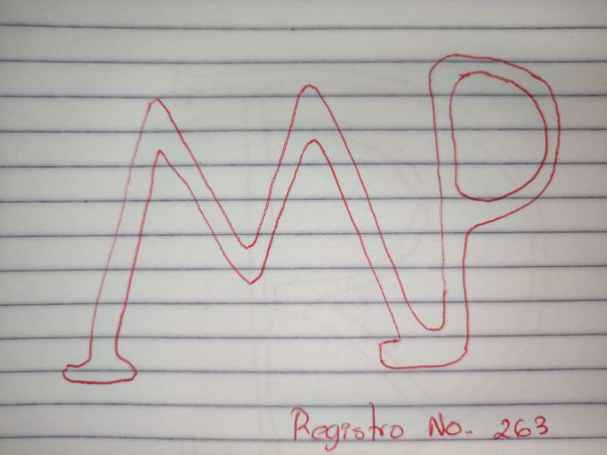 MP
Registro No. 263